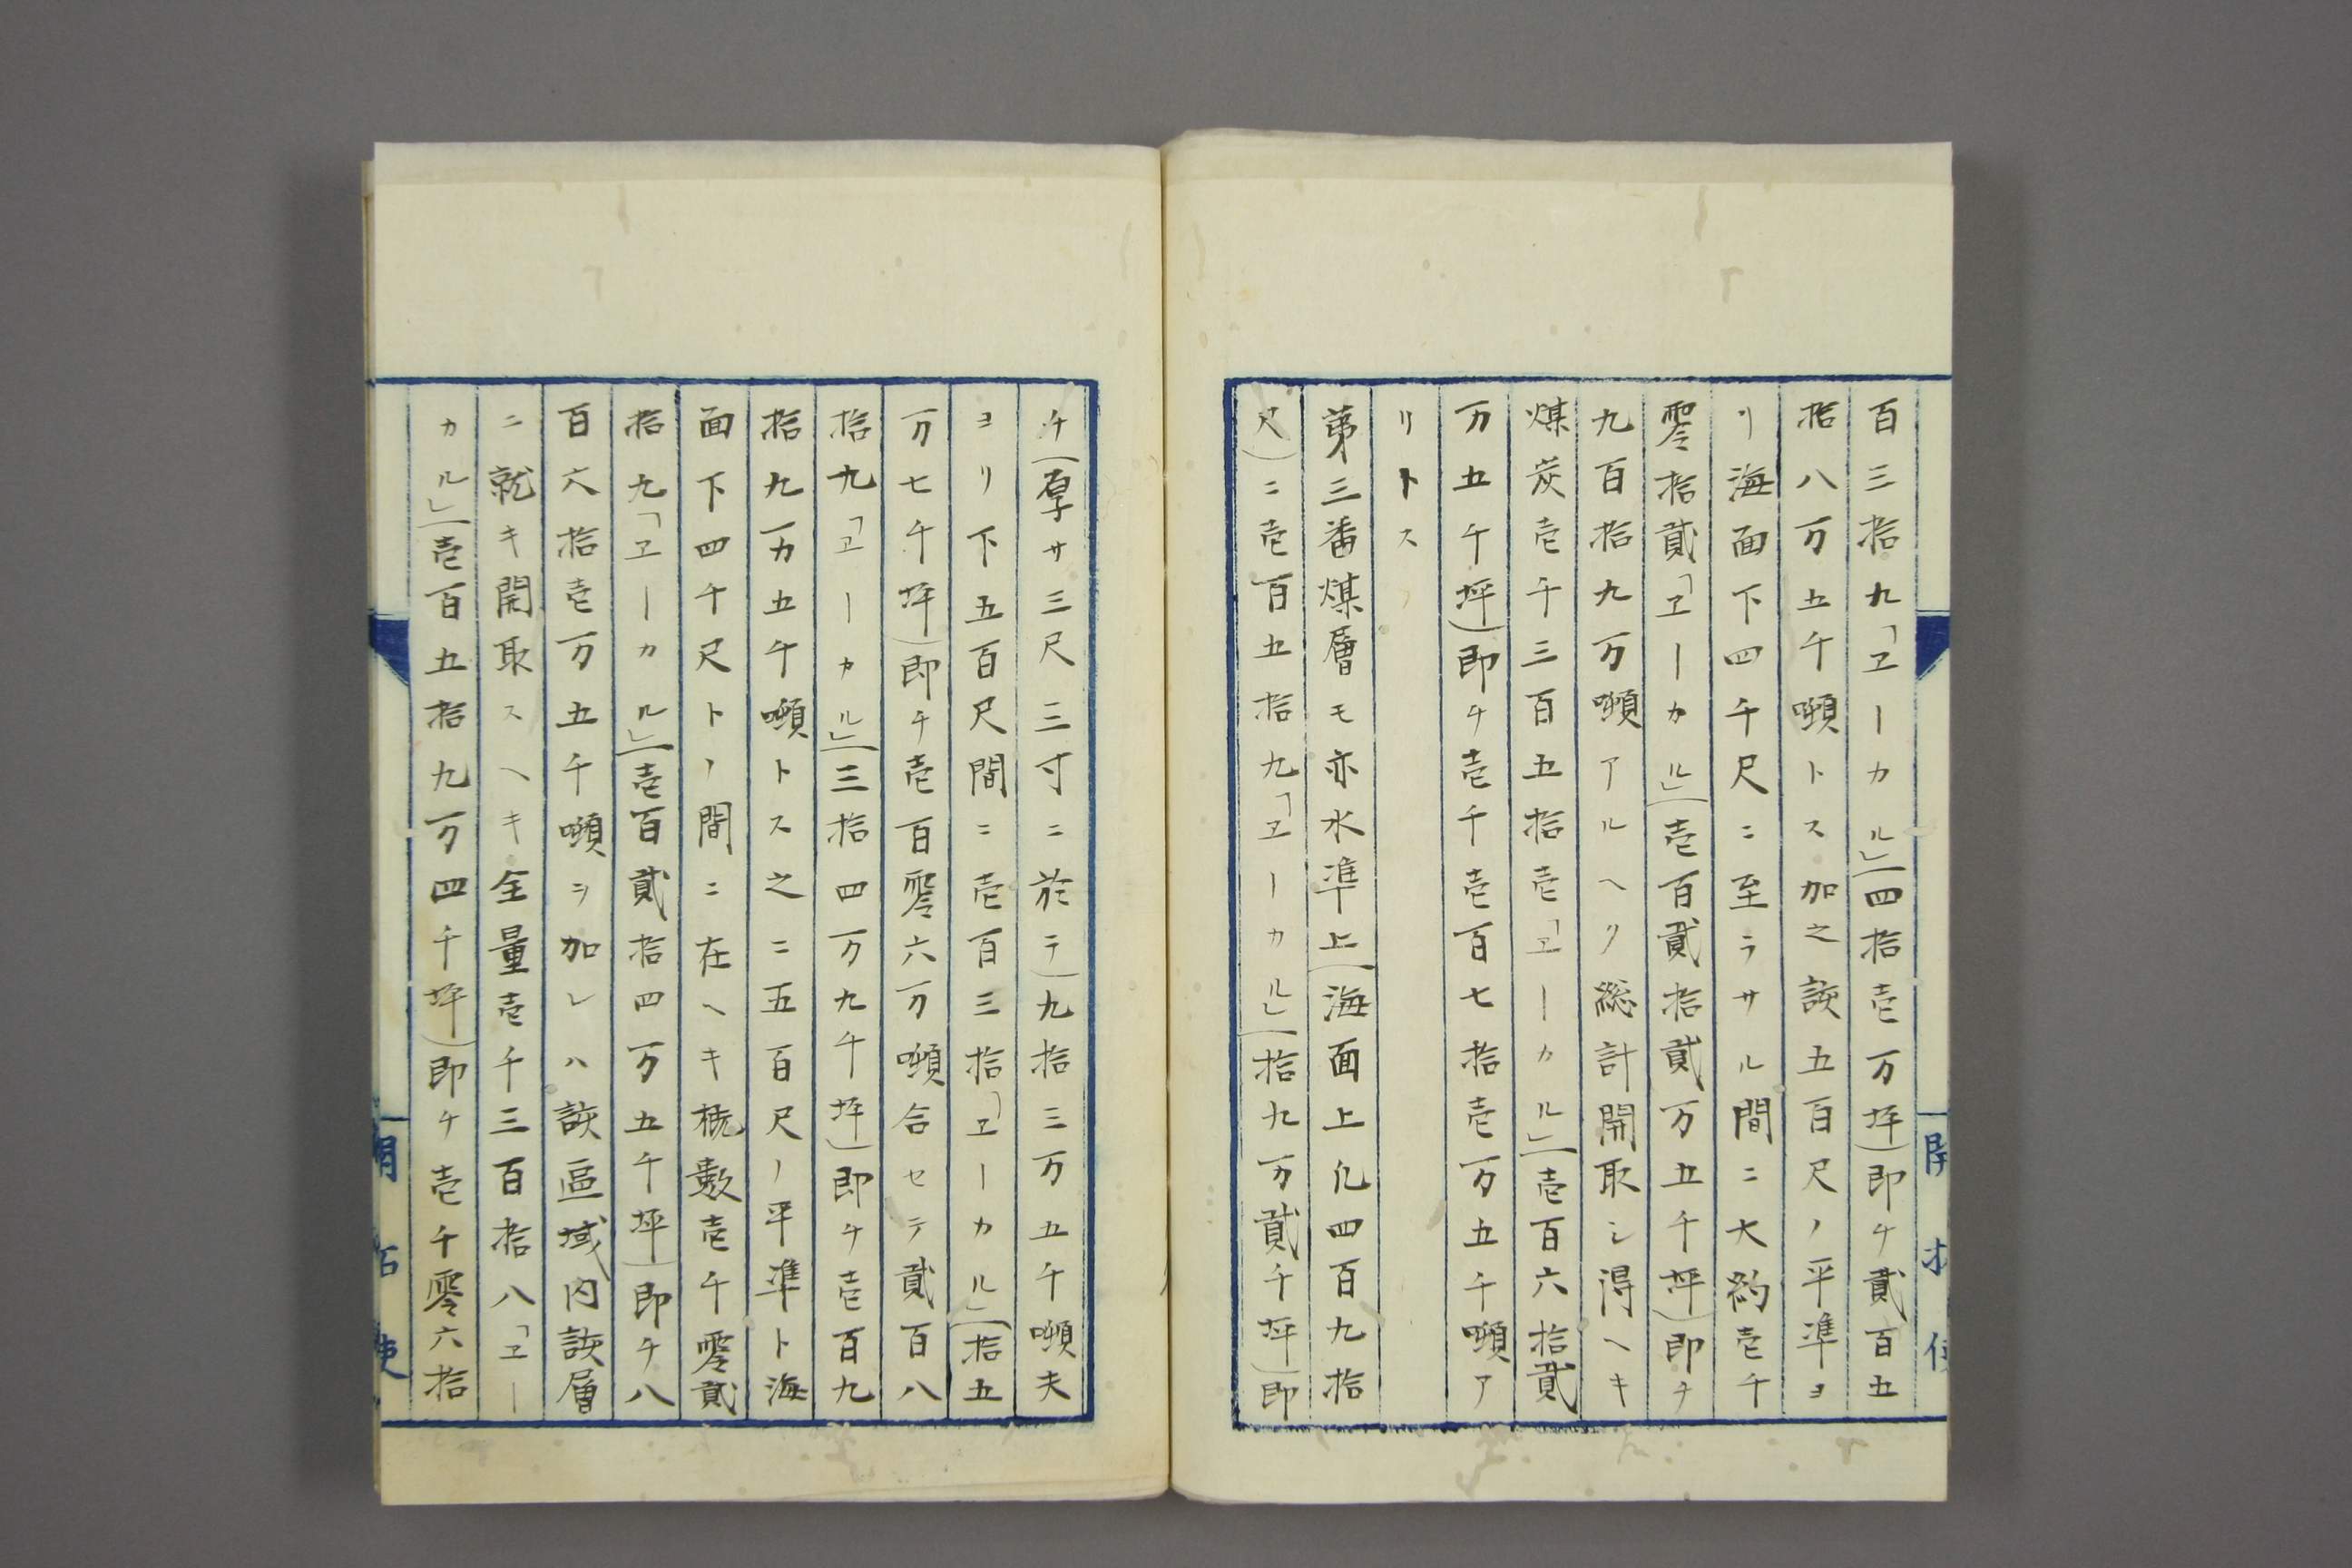 百三拾九「ヱーカル」(四拾壱万坪)即チ貳百五
拾八万五千噸トス加之該五百尺ノ平準ヨ
リ海面下四千尺ニ至ラサル間ニ大約壱千
零拾貳「ヱーカル」(壱百貳拾貳万五千坪)即チ
九百拾九万噸アルヘク総計開取シ得ヘキ
煤炭壱千三百五拾壱「ヱーカル」(壱百六拾貳
万五千坪)即チ壱千壱百七拾壱万五千噸ア
リトス
第三番煤層モ亦水準上(海面上凡四百九拾
尺)ニ壱百五拾九「ヱーカル」(拾九万貳千坪)即
チ(厚サ三尺三寸ニ於テ)九拾三万五千噸夫
ヨリ下五百尺間ニ壱百三拾「ヱーカル」(拾五
万七千坪)即チ壱百零六万噸合セテ貳百八
拾九「ヱーカル」(三拾四万九千坪)即チ壱百九
拾九万五千噸トス之ニ五百尺ノ平準ト海
面下四千尺トノ間ニ在ヘキ概數壱千零貳
拾九「ヱーカル」(壱百貳拾四万五千坪)即チ八
百六拾壱万五千噸ヲ加レハ該區域内該層
ニ就キ開取スヘキ全量壱千三百拾八「ヱー
カル」(壱百五拾九万四千坪)即チ壱千零六拾
開拓使